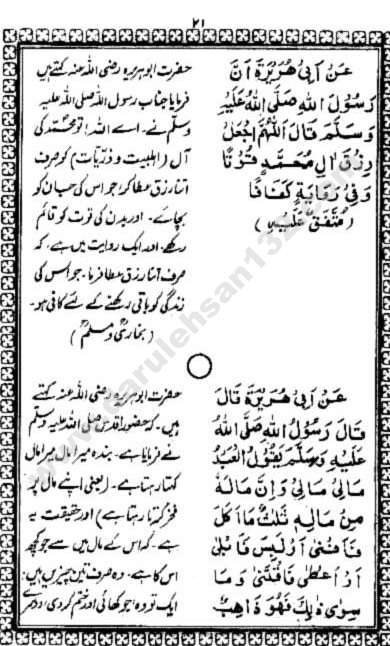 ۲۱
عَنْ اَبِیْ هُرَیْرَةَ اَنَّ
رَسُوْلَ اللهِ صَلَّی اللهُ عَلَیْهِ
وَسَلَّمَ قَالَ اَللّٰهُمَّ اجْعَلْ
رِزْقَ اٰلِ مُحَمَّدٍ قُوْتًا
وَفِیْ رِوَایَةٍ کَفَافًا
(مُتَّفَقٌ عَلَیْهِ)
حضرت ابوہریرہ رضی اللہ عنہ کہتے ہیں
فرمایا جناب رسول اللہ صلی اللہ علیہ
وسلم نے۔ اے اللہ! تو محمدؐ کی
آل (اہلبیت و ذریّات) کو صرف
اتنا رزق عطا کر! جو اس کی جان کو
بچائے۔ اور بدن کی قوت کو قائم
رکھے۔ اور ایک روایت میں ہے۔ کہ
صرف اتنا رزق عطا فرما۔ جو اس کی
زندگی کو باقی رکھنے کے لئے کافی ہو۔
(بخاریؒ و مسلمؒ)
عَنْ اَبِیْ هُرَیْرَةَ قَالَ
قَالَ رَسُوْلُ اللهِ صَلَّی اللهُ
عَلَیْهِ وَسَلَّمَ یَقُوْلُ الْعَبْدُ
مَالِیْ مَالِیْ وَاِنَّ مَالَهٗ
مِنْ مَالِهٖ ثَلٰثٌ مَا اَکَلَ
فَاَفْنٰی اَوْ لَبِسَ فَاَبْلٰی
اَوْ اَعْطٰی فَاقْتَنٰی وَمَا
سِوٰی ذٰلِكَ فَهُوَ ذَاهِبٌ
حضرت ابوہریرہ رضی اللہ عنہ کہتے
ہیں۔ کہ حضور اقدس صلی اللہ علیہ وسلم
نے فرمایا ہے۔ بندہ میرا مال میرا مال
کہتا رہتا ہے۔ (یعنی اپنے مال پر
فخر کرتا رہتا ہے) اور حقیقت یہ
ہے۔ کہ اس کے مال میں سے جو کچھ
اس کا ہے۔ وہ صرف تین چیزیں ہیں:
ایک تو وہ! جو کھائی اور ختم کر دی! دوسرے
www.darulehsan132.com